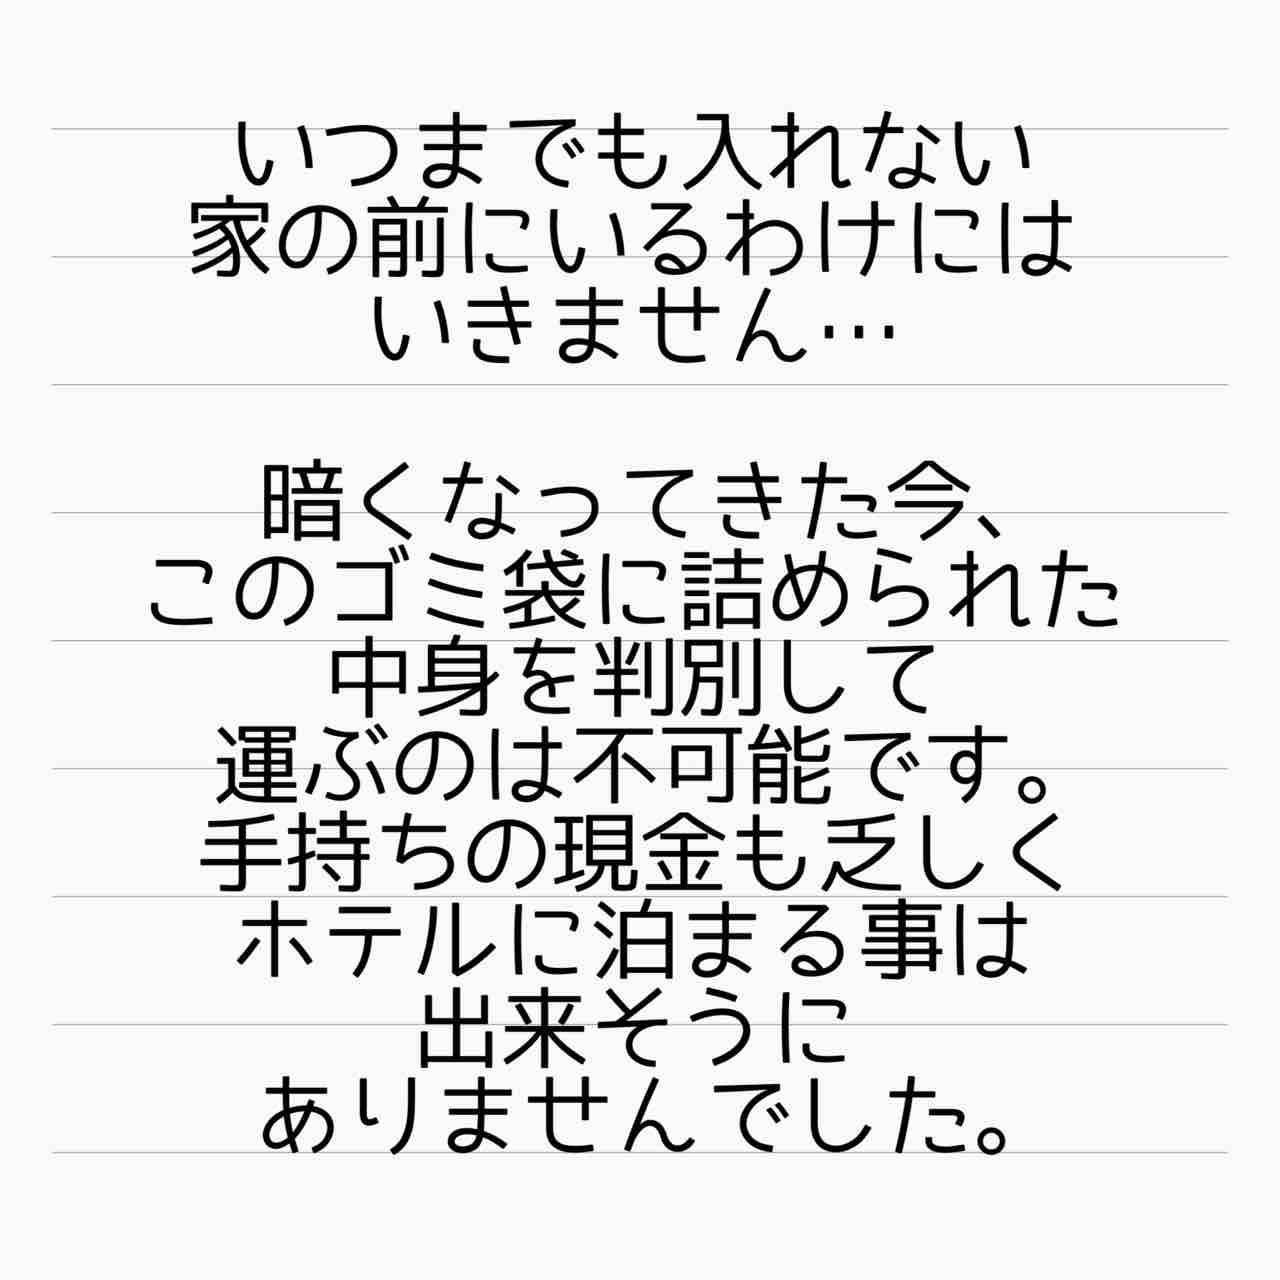 いつまでも入れない
家の前にいるわけには
いきません…
暗くなってきた今、
このゴミ袋に詰められた
中身を判別して
運ぶのは不可能です。
手持ちの現金も乏しく
ホテルに泊まる事は
出来そうに
ありませんでした。